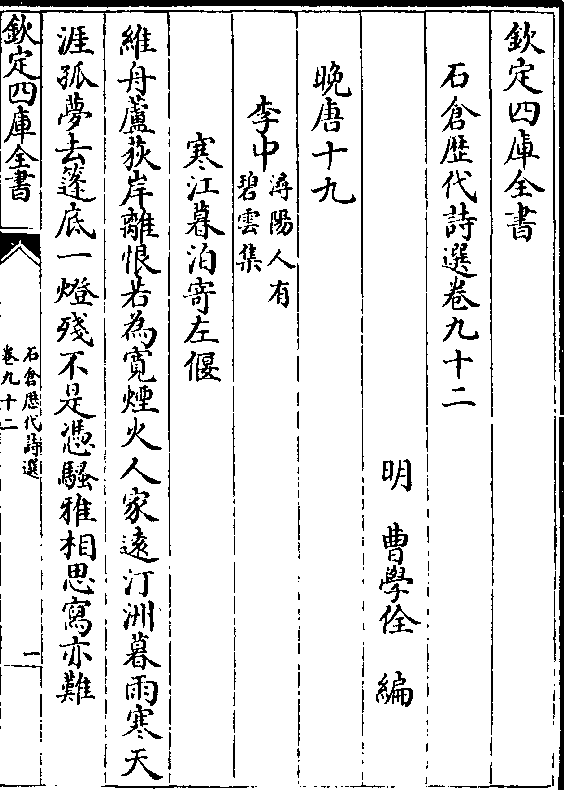 欽定四庫全書
石倉歴代詩選卷九十二
明　曹學佺　編
晚唐十九
李中
潯陽人有
碧雲集
寒江暮泊寄左偃
維舟蘆荻岸離恨若為寛煙火人家遠汀洲暮雨寒天
涯孤夢去篷底一燈殘不是憑騷雅相思寫亦難
欽定四庫全書
石倉歴代詩選
卷九十二
一